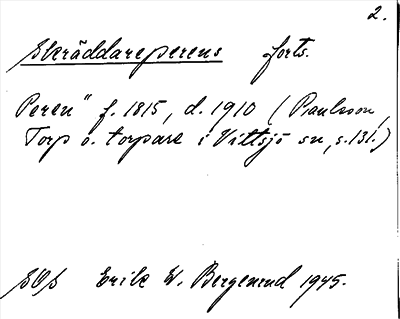 2.
Skräddareperens forts.
Peren" f. 1815, d. 1910 (Paulsson,
Torp o. torpare i Vittsjö sn, s. 131.)
Erik W. Bergemund 1945.